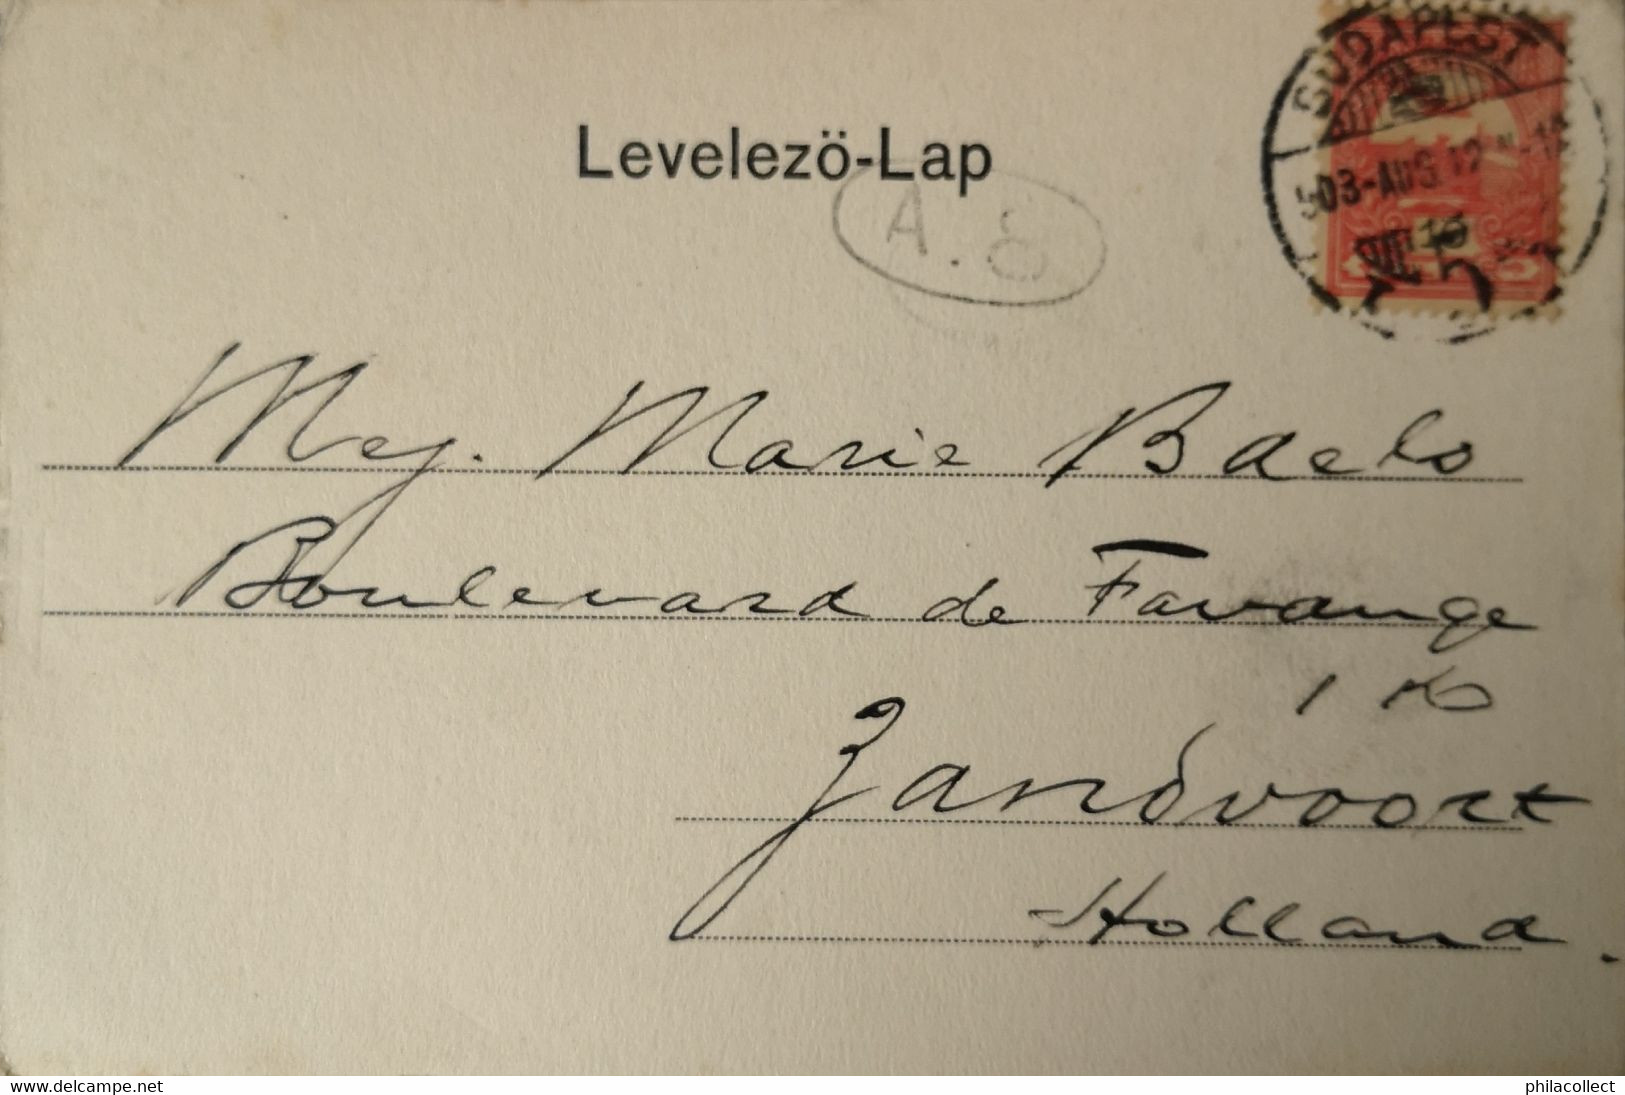 BUDAPEST
503-AUG 12
Levelezö-Lap
A. 8
Mej. Marie Baelo
Boulevard de Favauge
Zandvoort
Holland.
www.delcampe.net
philacollect